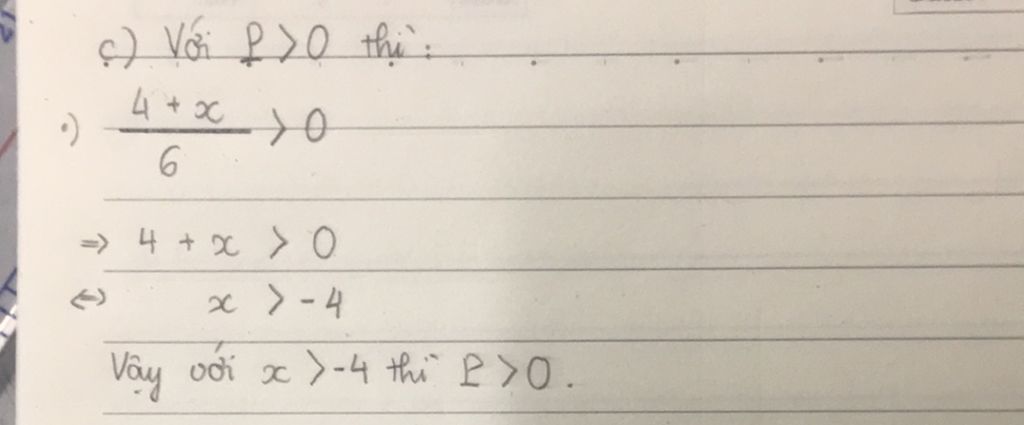 c) Với P > 0 thì:
•) \frac{4 + x}{6} > 0
=> 4 + x > 0
<=> x > -4
Vậy với x > -4 thì P > 0.